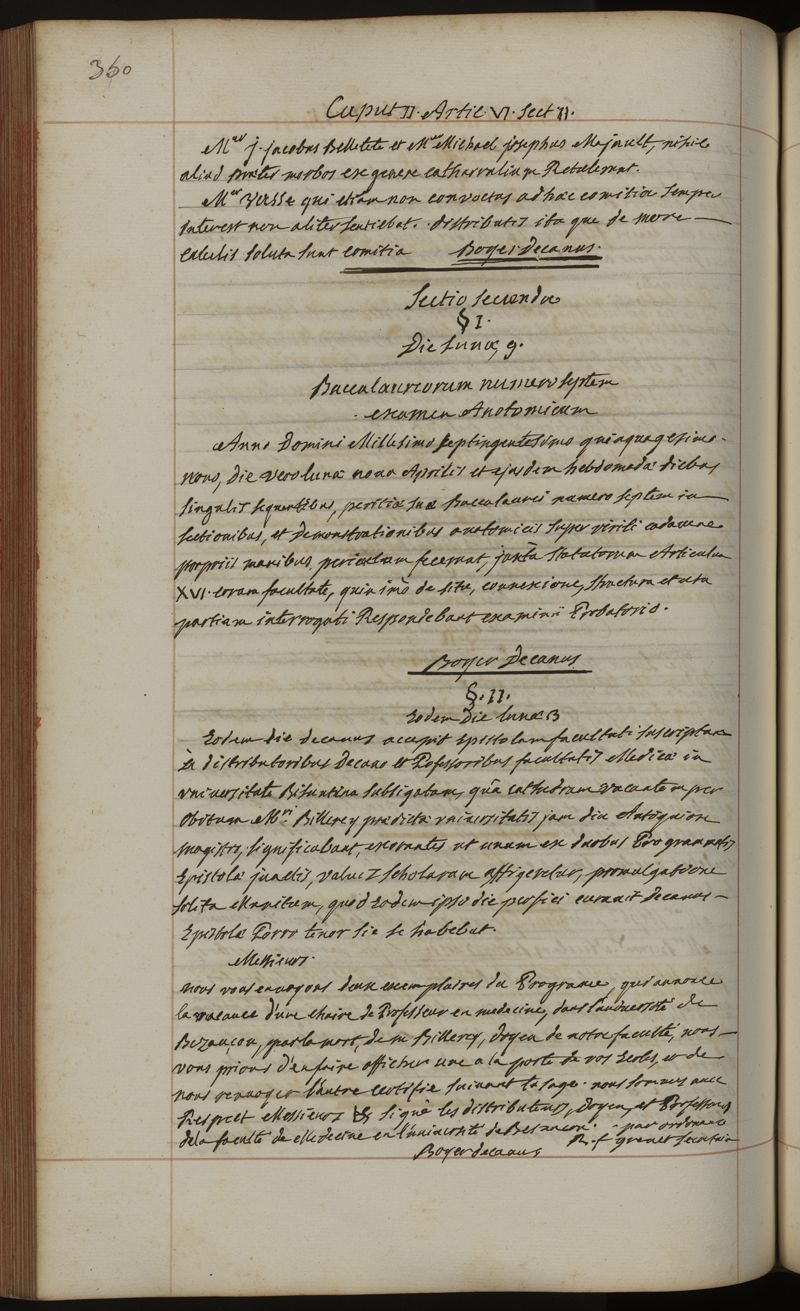 360
Caput II. Artic. VI. Sect II.
Mer j. jacobus Belletete et Mer Michael josephus Majault, nihil
aliud praeter morbos ex genere catharralium Retulerunt.
Mer Verne qui etiam non convoctus ad haec comitia semper
interest non aliter sentiebat. distributis ita que de more
calculis soluta sunt comitia Boyer decanus.
Sectio secunda
§ I.
Die lunae, 9.
Baccalaureorum numero septem
examen Anatomicum
Anno Domini Millesimo septingentesimo quinquagesimo
nono, Die vero lunae nona Aprilis et ejusdem hebdomadae diebus
singulis sequentibus, peritiae suae Baccalaurei numero septem in
sectionibus, et Demonstrationibus anatomicis super virili cadavere
propriis manibus periculum fecerunt, juxta statutorum Articulum
XVI. coram facultate, quin imò de situ, connexione, structura et usu
partium interrogati Respondebant examinii Probatorio.
Boyer Decanus
§. II.
Eodem Die lunae 9
Eodem die decanus accepit Epistolam facultati inscriptam
à distributoribus Decano et Professoribus facultatis Medicae in
universitate Bisuntina subsignatam, quâ cathedram vacantem per
obitum Mri Billerey praedictae universitatis jam diu Antiquiore
magistro, significabant, exorantes ut unum ex duobus Programmatis
Epistolae junctis, valvis scholarum affigeretur, promulgatione
solita munitum, quod eodem ipso die perfici curavit decanus
Epistolae Porro tenor sic se habebat.
Messieurs.
nous vous envoyons deux exemplaires du Programe, qui annonce
la vacance d'une chaire de Professeur en medecine, dans l'université de
Bezançon, par la mort, de m. Billerey, doyen de notre faculté, nous
vous prions d'en faire afficher une a la porte de vos Ecoles, et de
nous renvoyer l'autre certifié suivant l'usage. nous sommes avec
Respect Messieurs &c signé les distributeurs, doyen, et Professeurs
de la faculté de Medecine en l'université de Besancon. par ordonnance
Boyer decanus R. f grenet secretaire